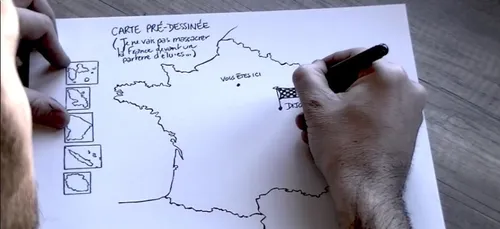 CARTE PRÉ-DESSINÉE
(Je ne vais pas massacrer
la France devant un
parterre d'élu·es...)
VOUS ÊTES ICI